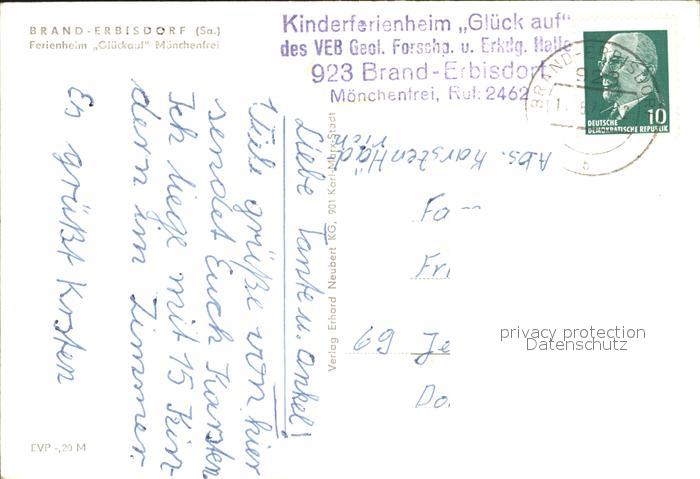 BRAND-ERBISDORF (Sa.)
Ferienheim „Glückauf" Mönchenfrei
Kinderferienheim „Glück auf"
des VEB Geol. Forschg. u. Erkdg. Halle
923 Brand-Erbisdorf
Mönchenfrei, Ruf: 2462
BRAND-ERBISDORF
10
DEUTSCHE
DEMOKRATISCHE REPUBLIK
b
Abs. Karsten
Liebe Tante u. Onkel!
Viele grüße von hier
sendet Euch Karsten
Ich liege mit 15 Kin-
dern im Zimmer.
Es grüßt Krsten
Verlag Erhard Neubert KG, 901 Karl-Marx-Stadt
Fa
Fr
69 Je
Do.
privacy protection
Datenschutz
EVP -,20 M